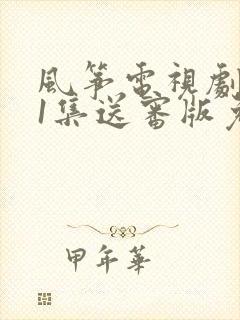 風筝電視劇
1集送審版免
甲年華